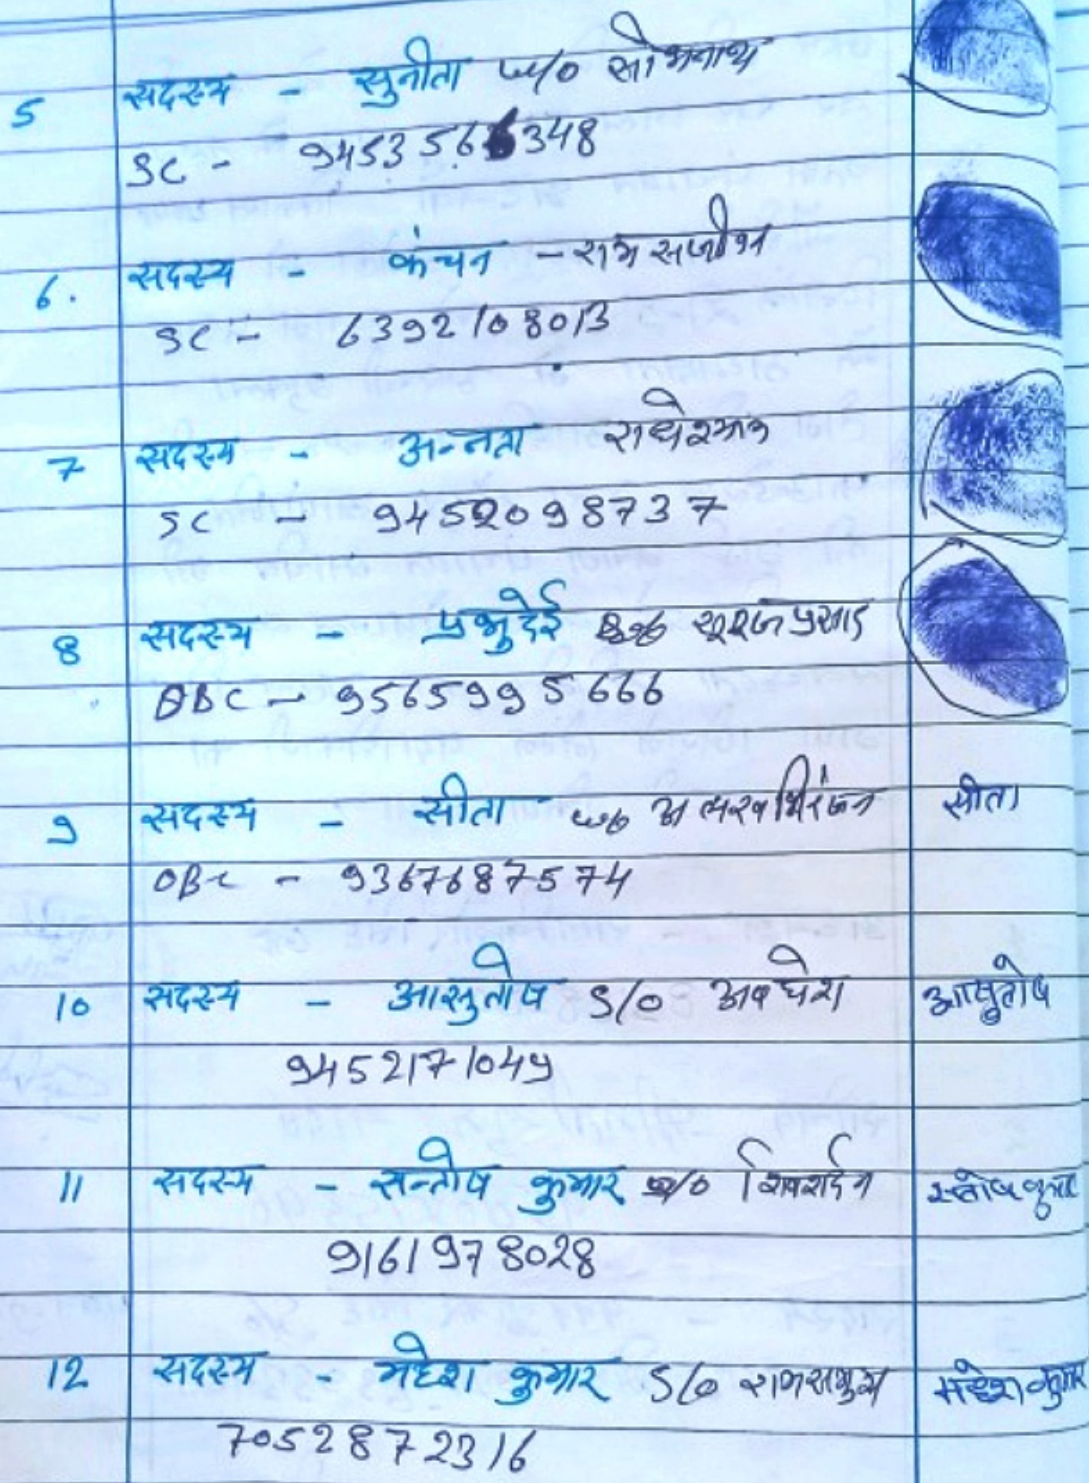 5 सदस्य - सुनीता w/o सोमनाथ
SC - 9453566348
6. सदस्य - कंचन - राम सजीवन
SC - 6392108013
7 सदस्य - अन्नता राधेश्याम
SC - 9452098737
8 सदस्य - प्रभुदेई सूरज प्रसाद
OBC - 9565995666
9 सदस्य - सीता w/o सीता
OBC - 9367687574
10 सदस्य - आसुतोष S/o अवधेश आसुतोष
9452171049
11 सदस्य - सन्तोष कुमार S/o सन्तोष कुमार
9161978028
12 सदस्य - महेश कुमार S/o महेश कुमार
7052872316